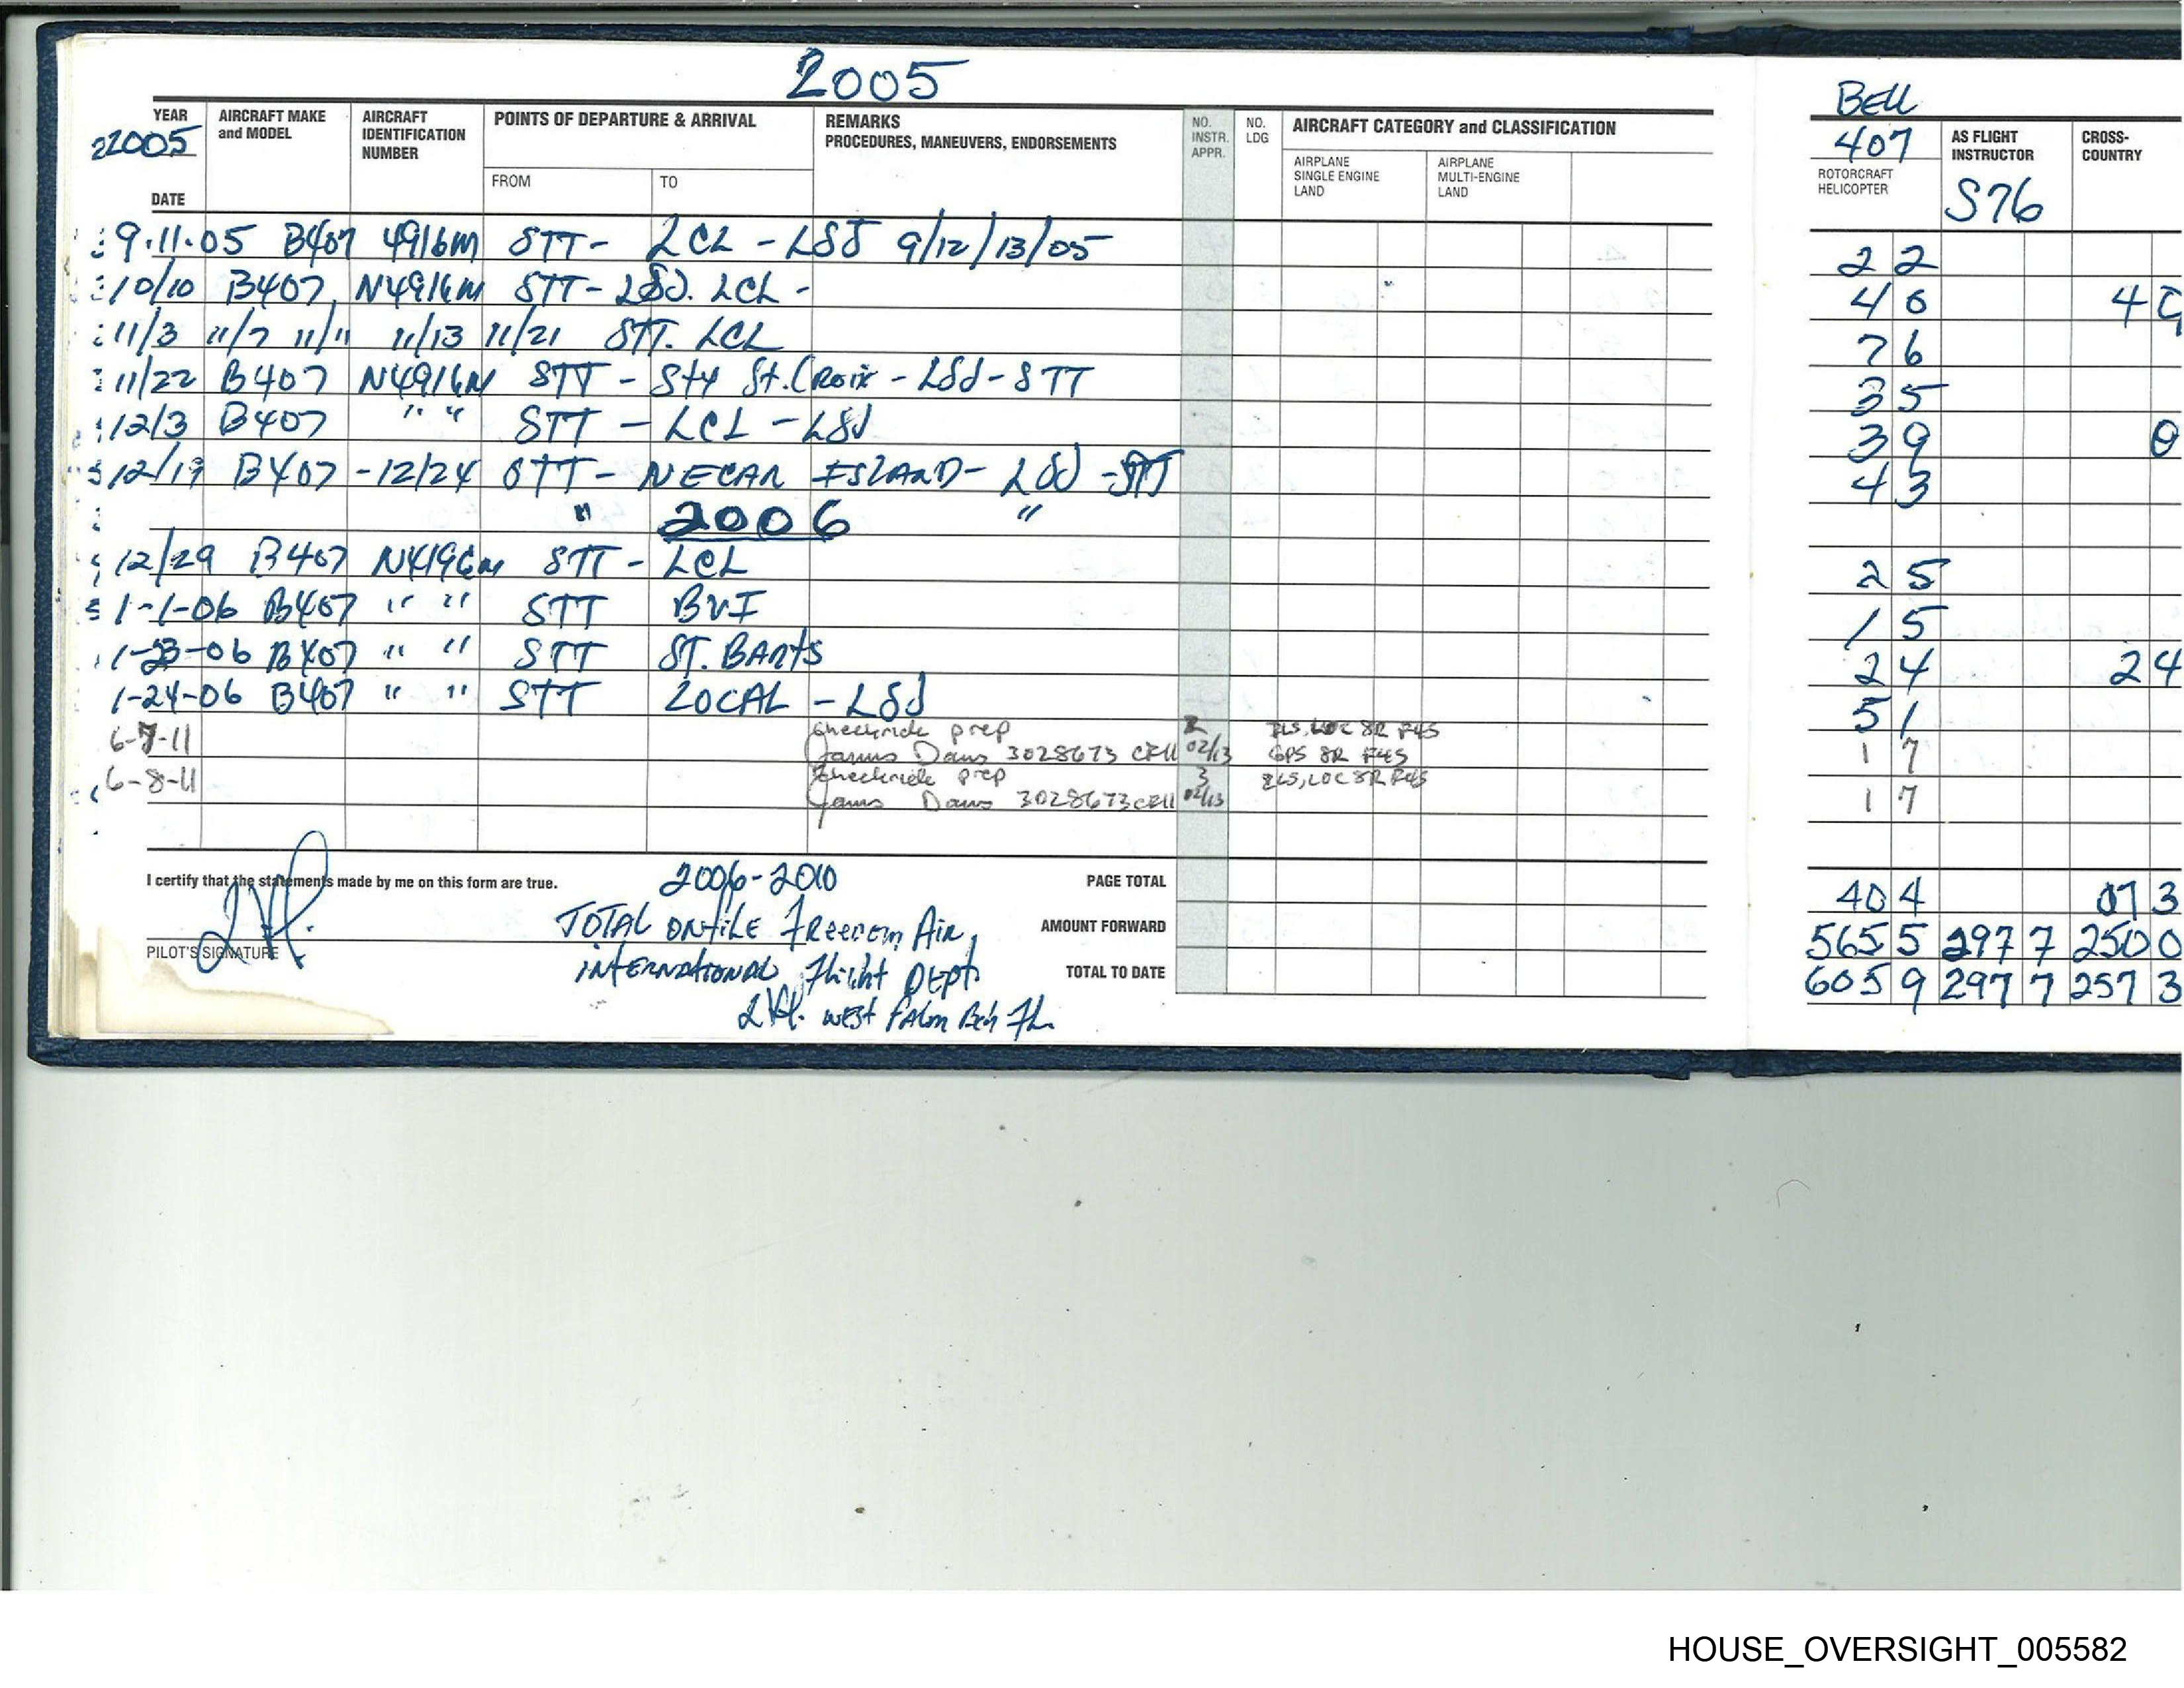 2005
YEAR AIRCRAFT MAKE and MODEL AIRCRAFT IDENTIFICATION NUMBER POINTS OF DEPARTURE & ARRIVAL REMARKS PROCEDURES, MANEUVERS, ENDORSEMENTS NO. INSTR. APPR. NO. LDG AIRCRAFT CATEGORY and CLASSIFICATION
2005
DATE FROM TO AIRPLANE SINGLE ENGINE LAND AIRPLANE MULTI-ENGINE LAND
BELL
407 AS FLIGHT INSTRUCTOR CROSS-COUNTRY
ROTORCRAFT HELICOPTER S76
9.11.05 B407 4916M STT- LCL - LSJ 9/12/13/05 2 2
10/10 B407 N4916M STT- LSJ. LCL - 4 6 4
11/3 11/7 11/11 11/13 11/21 STT. LCL 7 6
11/22 B407 N4916M STT - St. Croix - LSJ - STT 3 5
12/3 B407 " " STT - LCL - LSJ 3 9 0
12/19 B407 - 12/24 STT - NECAR ISLAND - LSJ - STT 4 3
" 2006 "
12/29 B407 N4196M STT - LCL 2 5
1-1-06 B407 " " STT BVI 1 5
1-23-06 B407 " " STT ST. BARTS 2 4 2 4
1-24-06 B407 " " STT LOCAL - LSJ 5 1
6-7-11 checkride prep 2 ILS, LOC 8R F45
3028673 CFII 02/13 GPS 8R F45 1 7
6-8-11 checkride prep 3 ILS, LOC 8R F45
3028673 CFII 02/13 1 7
I certify that the statements made by me on this form are true. 2006-2010 PAGE TOTAL 40 4 07 3
TOTAL ON FILE Freedom Air AMOUNT FORWARD 565 5 297 7 250 0
PILOT'S SIGNATURE INTERNATIONAL Flight DEPT. TOTAL TO DATE 605 9 297 7 257 3
West Palm Bch Fl.
HOUSE_OVERSIGHT_005582